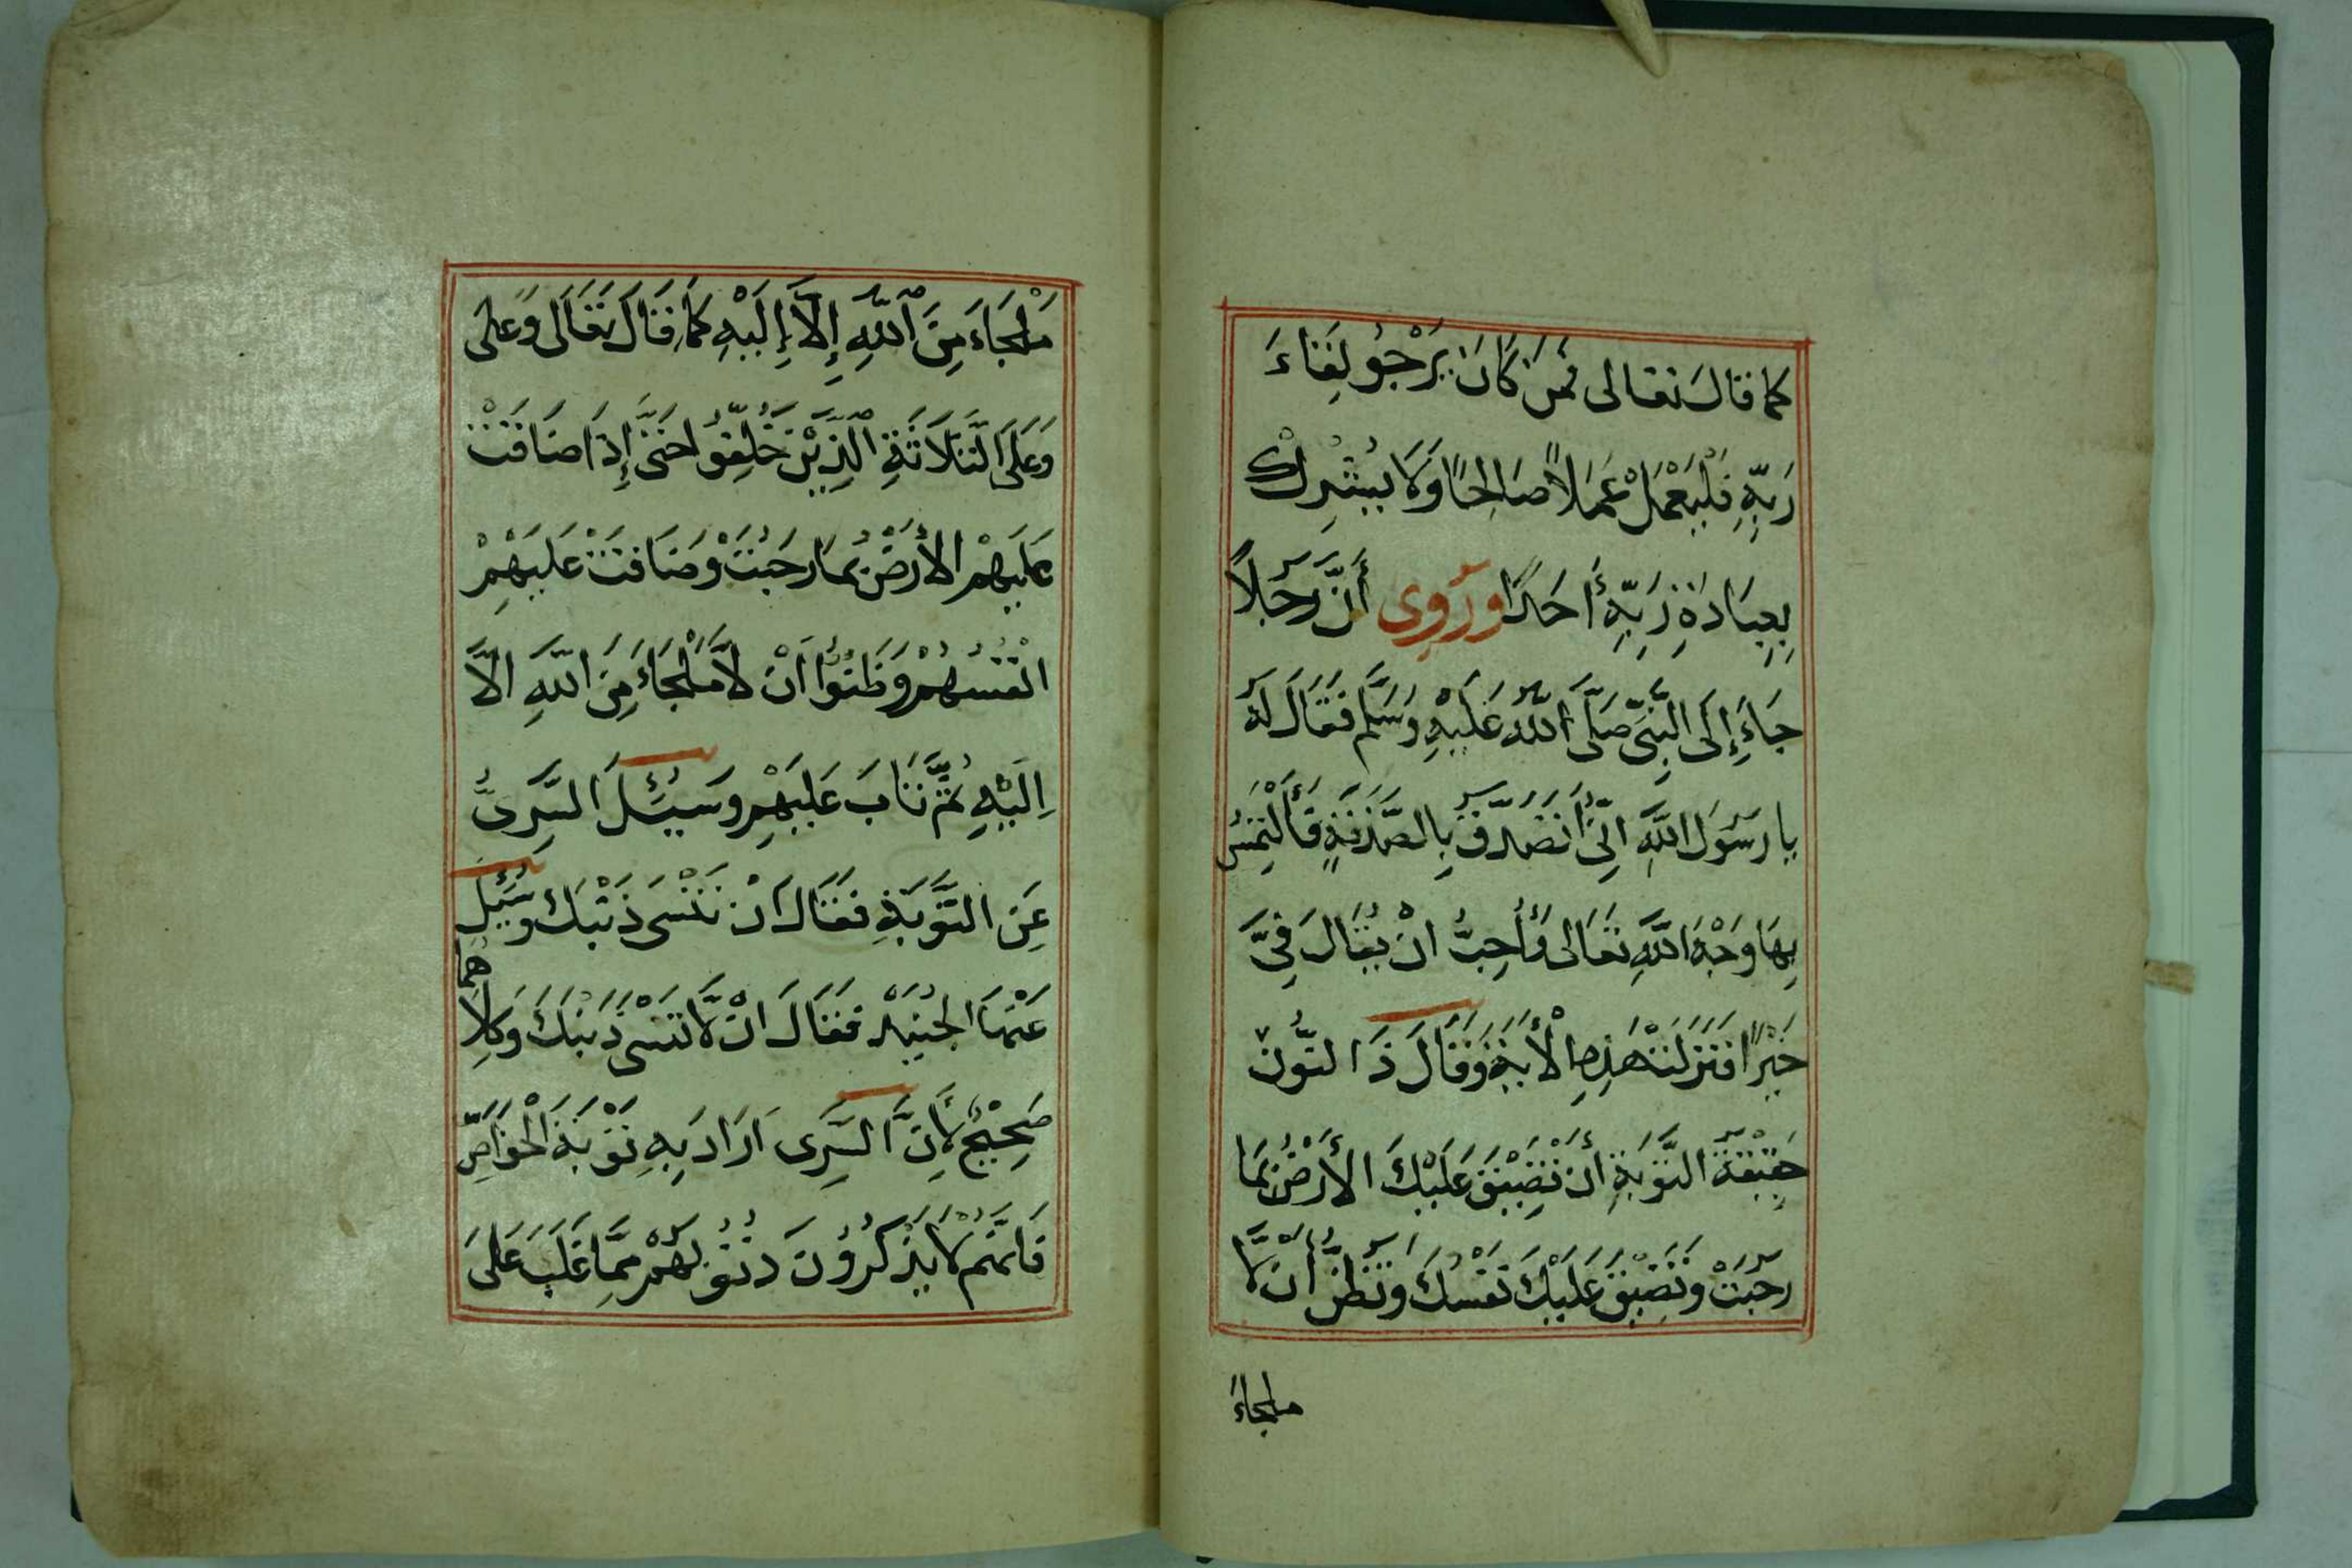 كما قَالَ تعالى فَمَنْ كَانَ يَرْجُو لِقَاءَ
رَبِّهِ فَلْيَعْمَلْ عَمَلاً صَالِحًا وَلَا يُشْرِكْ
بِعِبَادَةِ رَبِّهِ أَحَدًا وَرُوِى أَنَّ رَجُلاً
جَاءَ إِلَى النَّبِيِّ صَلَّى اللّٰهُ عَلَيْهِ وَسَلَّم فَقَالَ لَهُ
يا رَسُولَ اللَّهِ اِنِّى أَتَصَدَّقُ بِالصَّدَقَةِ فَأَلْتَمِسُ
بِهَا وَجْهَ اللَّهِ تَعَالى وَأُحِبُّ انْ يُقَالَ فِيَّ
خَيْرًا فَنَزَلَتْ هٰذِهِ الْأَيَةِ وَقَالَ ذَا النُّون
حَقِيْقَةُ التَّوْبَةِ أَنْ تَضِيْقَ عَلَيْكَ الأَرْضُ بِمَا
رَحُبَتْ وَتَضِيْقَ عَلَيْكَ نَفْسُكَ وَتَظُنَّ أَنْ لَّا
ملجاءَ
مَلْجَاءَ مِنَ اللّٰهِ إِلَّا إِلَيْهِ كَمَا قَالَ تَعَالَى وَعَلَى
وَعَلَى الثَّلَاثَةِ الَّذِيْنَ خُلِّفُوا حَتَّى إِذَا ضَاقَتْ
عَلَيْهِمْ الأَرْضُ بِمَا رَحُبَتْ وَضَاقَتْ عَلَيْهِمْ
انْفُسُهُمْ وَظَنُّوْا اَنْ لَّا مَلْجَاءَ مِنَ اللّٰهِ الَّا
اِلَيْهِ ثُمَّ تَابَ عَلَيْهِمْ وَسُئِلَ السَّرِىُّ
عَنِ التَّوْبَةِ فَقَالَ اَنْ تَنْسَى ذَنْبَكَ وَسُئِلَ
عَنْهَا الجُنَيْد فَقَالَ انْ لَّا تَنْسى ذَنْبَكَ وَكِلاَهُمَا
صَحِيْحٌ لِأَنَّ السَّرِى اَرَادَ بِهِ تَوْبَةَ الْخَوَاصِّ
فَاِنَّهُمْ لَا يَذْكُرُونَ ذُنُوبَهُمْ مِمَّا غَلَبَ عَلَى